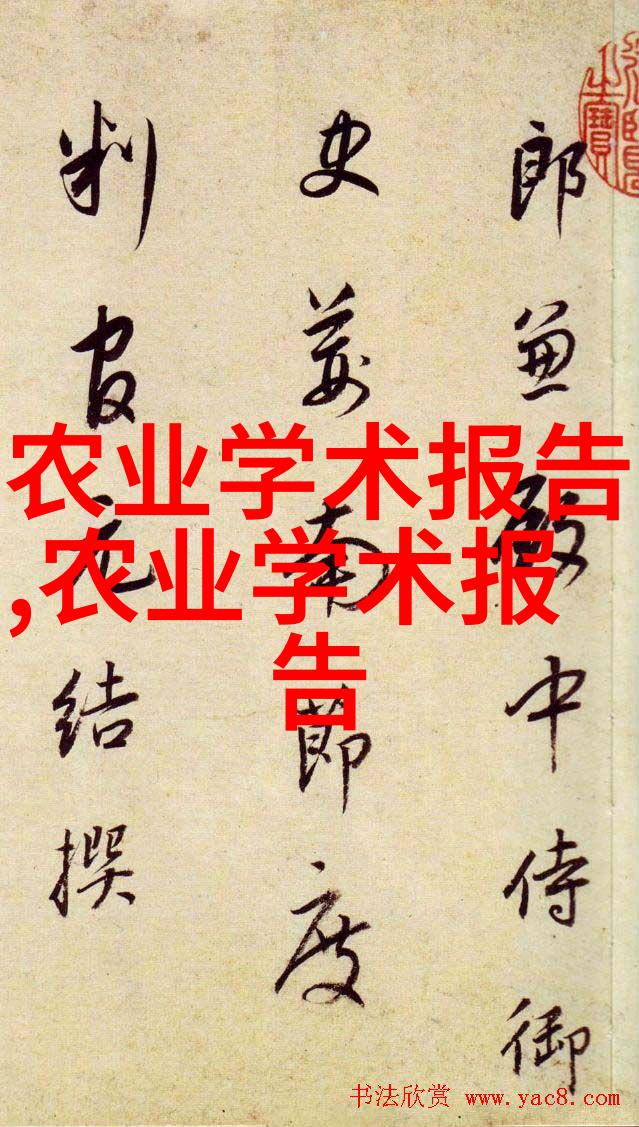 郎兼殿中侍御
史南節度
判官元結撰
农业学术报告
,农业学术报
告
书法欣赏 www.yac8.com